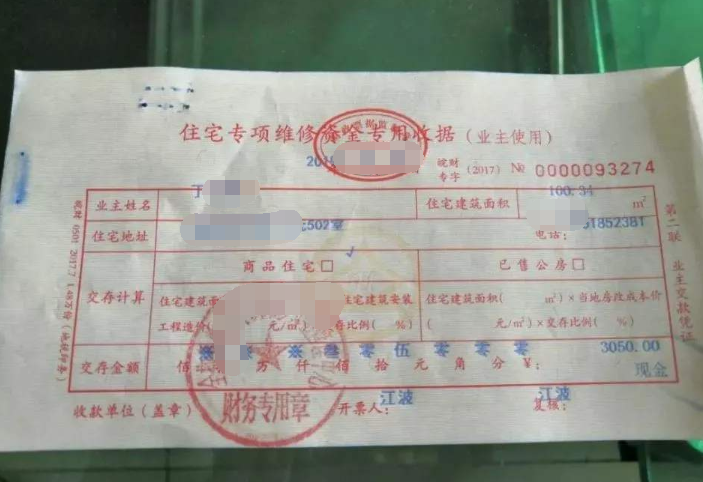 住宅专项维修资金专用收据(业主使用)
皖财
专字 (2017) № 0000093274
业主姓名 丁 住宅建筑面积 100.34 m²
住宅地址 502室 电话: 51852381
商品住宅□ ✓ 已售公房□
交存计算
住宅建筑面 住宅建筑安装 住宅建筑面积( m²)×当地房改成本价
工程造价( 元/m²) 存比例( %) ( 元/m²)×交存比例( %)
交存金额 佰 万 仟 佰 拾 元 角 分 ¥:
※ ※ 叁 零 伍 零 零 零 3050.00
现金
收款单位(盖章) 财务专用章 开票人: 江波 复核: 江波
第二联 业主交款凭证